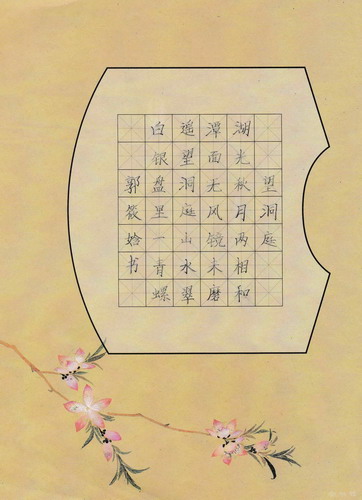 望洞庭
湖光秋月两相和
潭面无风镜未磨
遥望洞庭山水翠
白银盘里一青螺
郭筱书